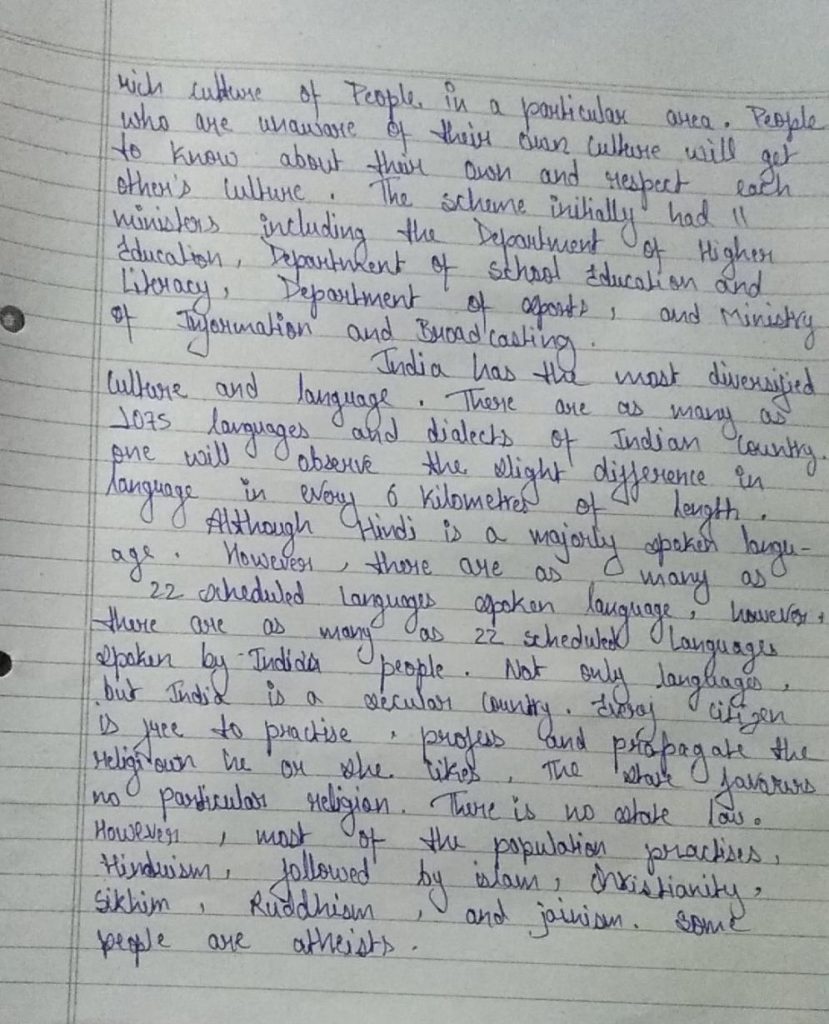 rich culture of People in a particular area. People
who are unaware of their own culture will get
to know about their own and respect each
other's culture. The scheme initially had 11
ministers including the Department of Higher
Education, Department of school Education and
Literacy, Department of sports, and Ministry
of Information and Broadcasting.
India has the most diversified
culture and language. There are as many as
1075 languages and dialects of Indian country.
one will observe the slight difference in
language in every 6 kilometres of length.
Although Hindi is a majorly spoken langu-
age. However, there are as many as
22 scheduled languages spoken language, however,
there are as many as 22 scheduled languages
spoken by Indian people. Not only languages,
but India is a secular country. Every citizen
is free to practise, profess and propagate the
he or she likes, The state favours
no particular religion. There is no state law.
However, most of the population practises,
Hinduism, followed by islam, Christianity,
Sikhim, Ruddhism, and jainism. Some
people are atheists.